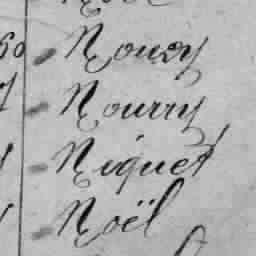 Noury
Nourry
Niquet
Noël